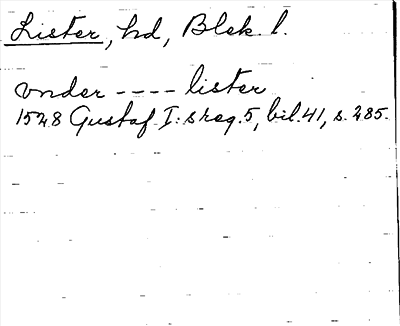 Lister, hd, Blek. l.
vnder ---- lister
1528 Gustaf I:s reg. 5, bil. 41, s. 285.